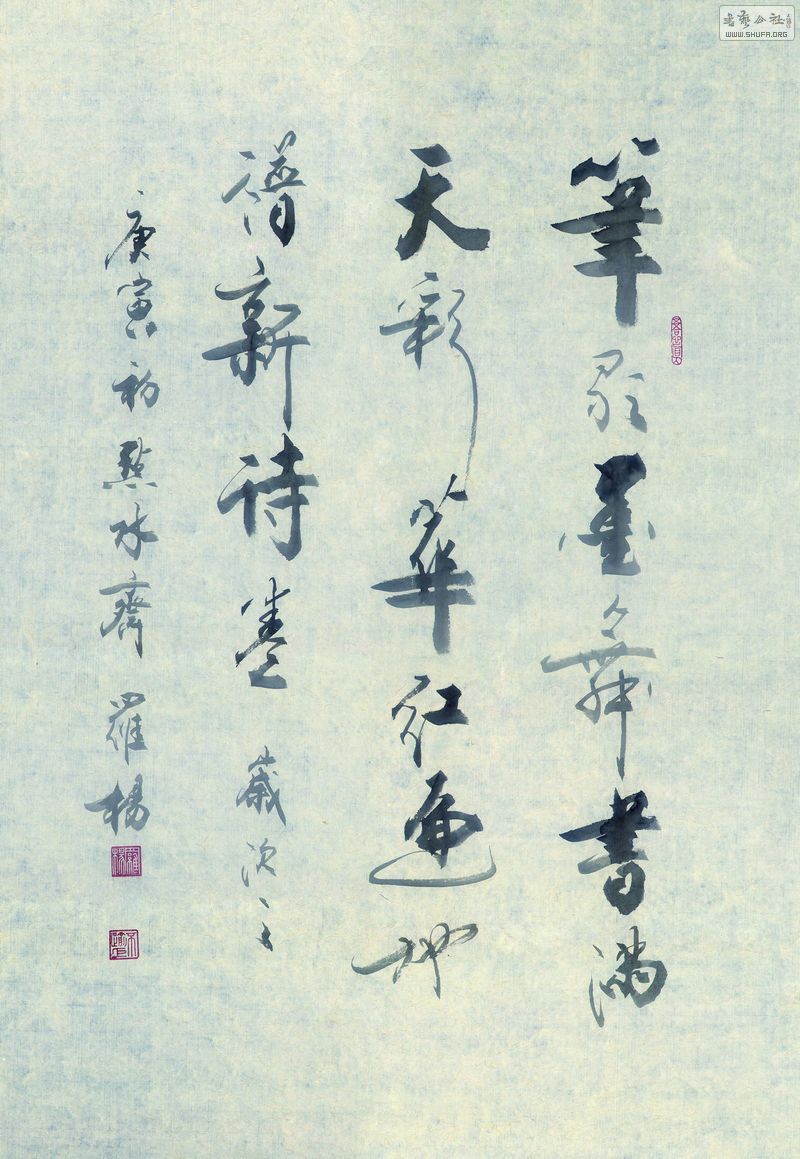 筆歌墨舞書滿
天彩華紅遍地
譜新詩卷 歲次之
庚寅初點水齋 羅楊
書藝公社
WWW.SHUFA.ORG